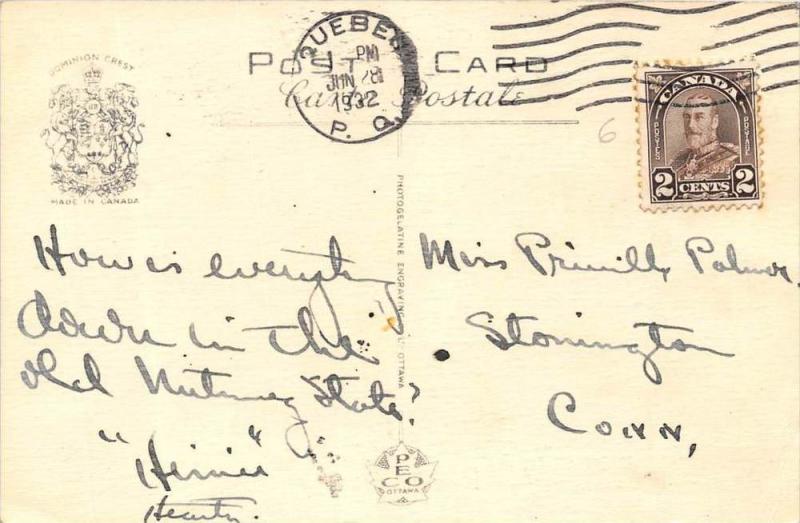 DOMINION CREST
MADE IN CANADA
POST CARD
Carte Postale
QUEBEC
PM
JUN 28
1932
P. Q.
CANADA
POSTES
POSTAGE
2 CENTS 2
6
How is everything
down in the
old Nutmeg State?
Miss Palmer,
Stonington
Conn,
PHOTOGELATINE ENGRAVING OTTAWA
PECO
OTTAWA